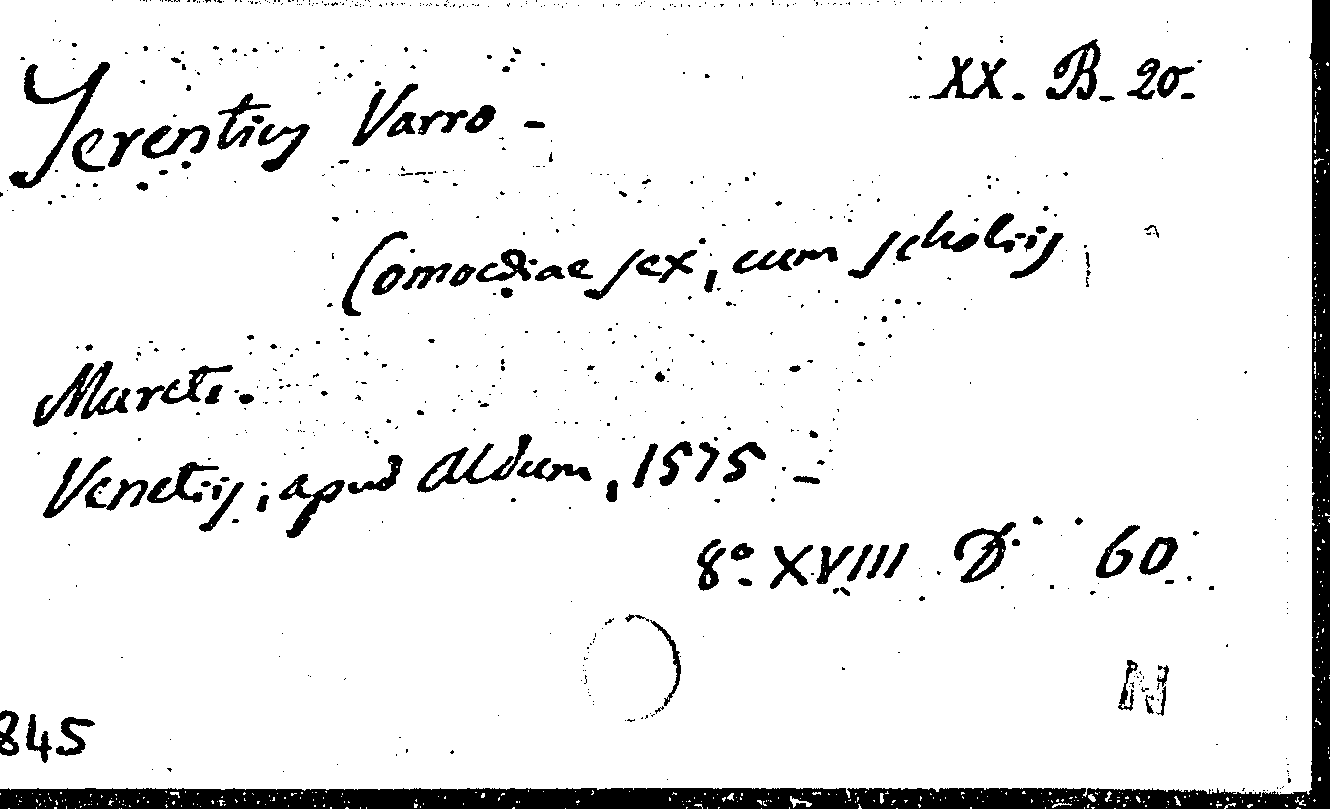 XX. B. 20.
Terentius Varro -
Comoediae sex, cum scholiis
Mureti.
Venetiis, apud Aldum, 1575 -
8º XVIII D 60
N
845